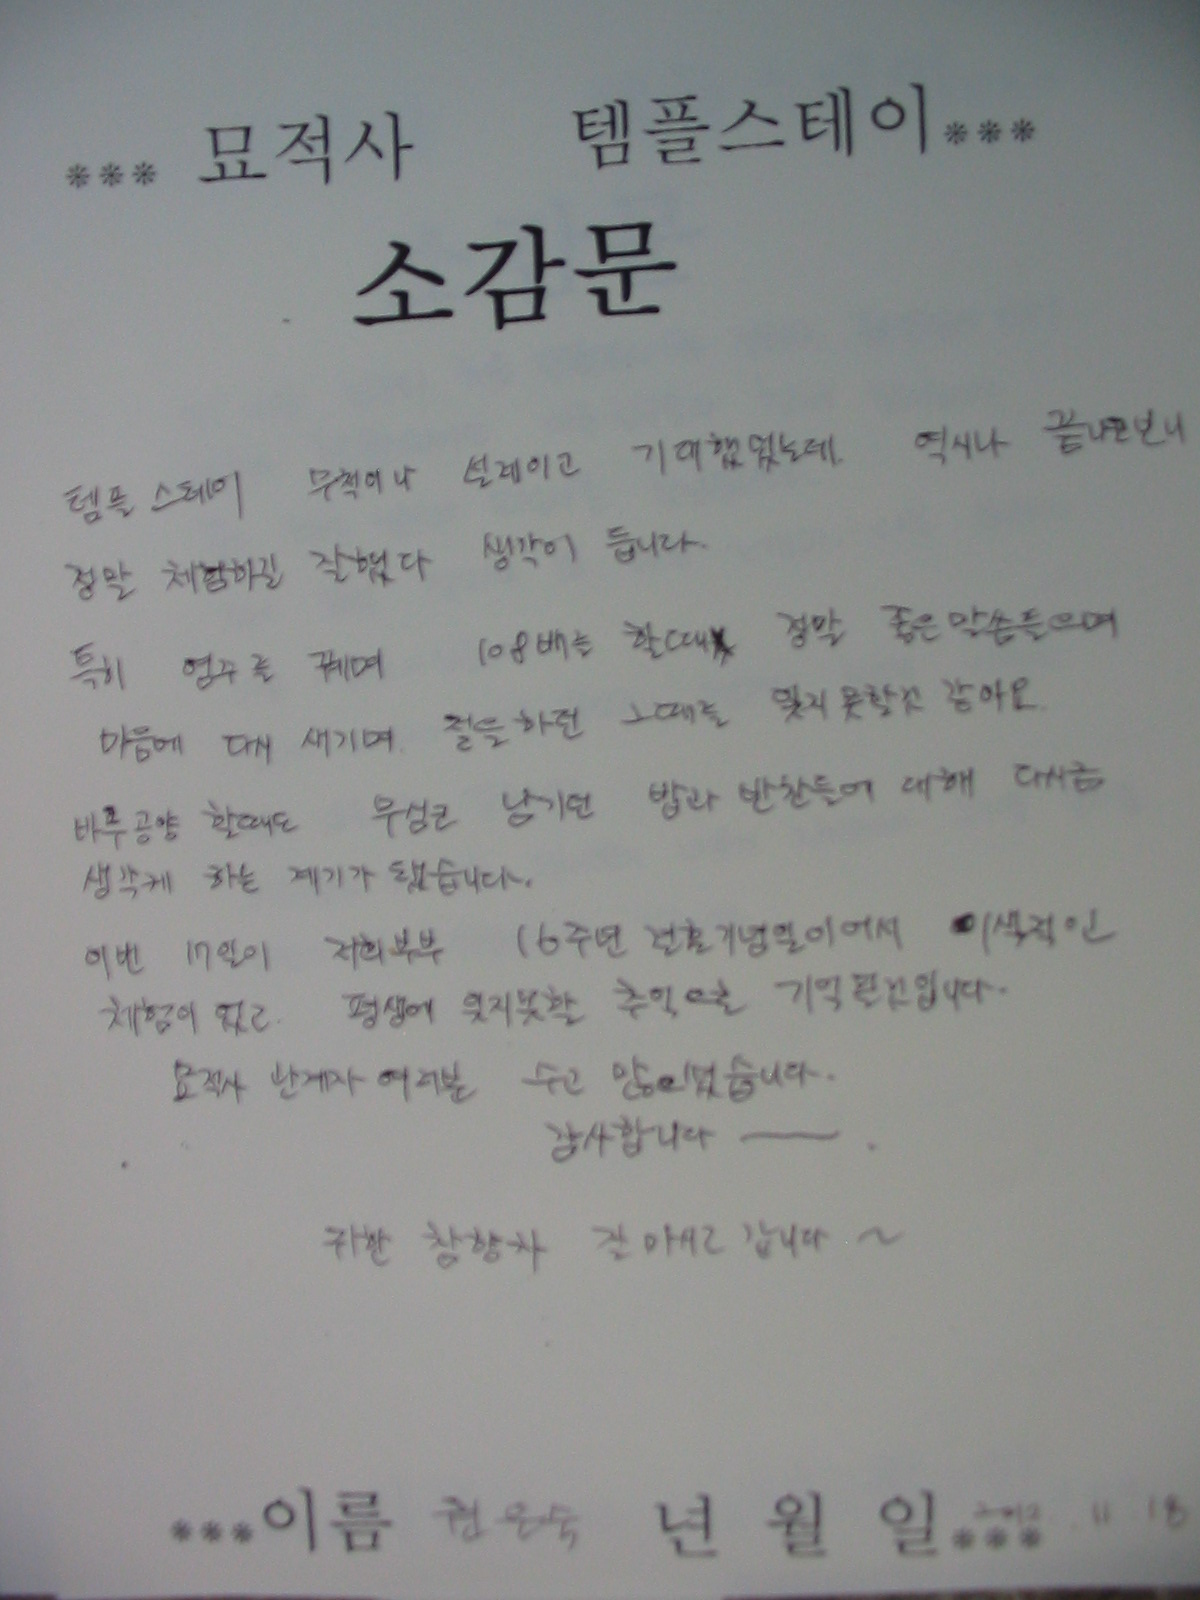 *** 묘적사 템플스테이***
소감문
템플스테이 무척이나 설레이고 기대했었는데 역시나 끝나고보니
정말 체험하길 잘했다 생각이 듭니다.
특히 염주를 꿰며 108배를 할때 정말 좋은말씀들으며
마음에 다시 새기며 절을하던 그때를 잊지못할것 같아요
바루공양 할때도 무심코 남기던 밥과 반찬들에 대해 다시금
생각케 하는 계기가 됐습니다.
이번 17일이 저희부부 16주년 결혼기념일이어서 이색적인
체험이 였고 평생에 잊지못할 추억으로 기억될것입니다.
묘적사 관계자 여러분 수고 많이셨습니다.
감사합니다 ——.
귀한 참향차 잘 마시고 갑니다 ~
***이름 권은숙 년 월 일*** 2012. 11 18